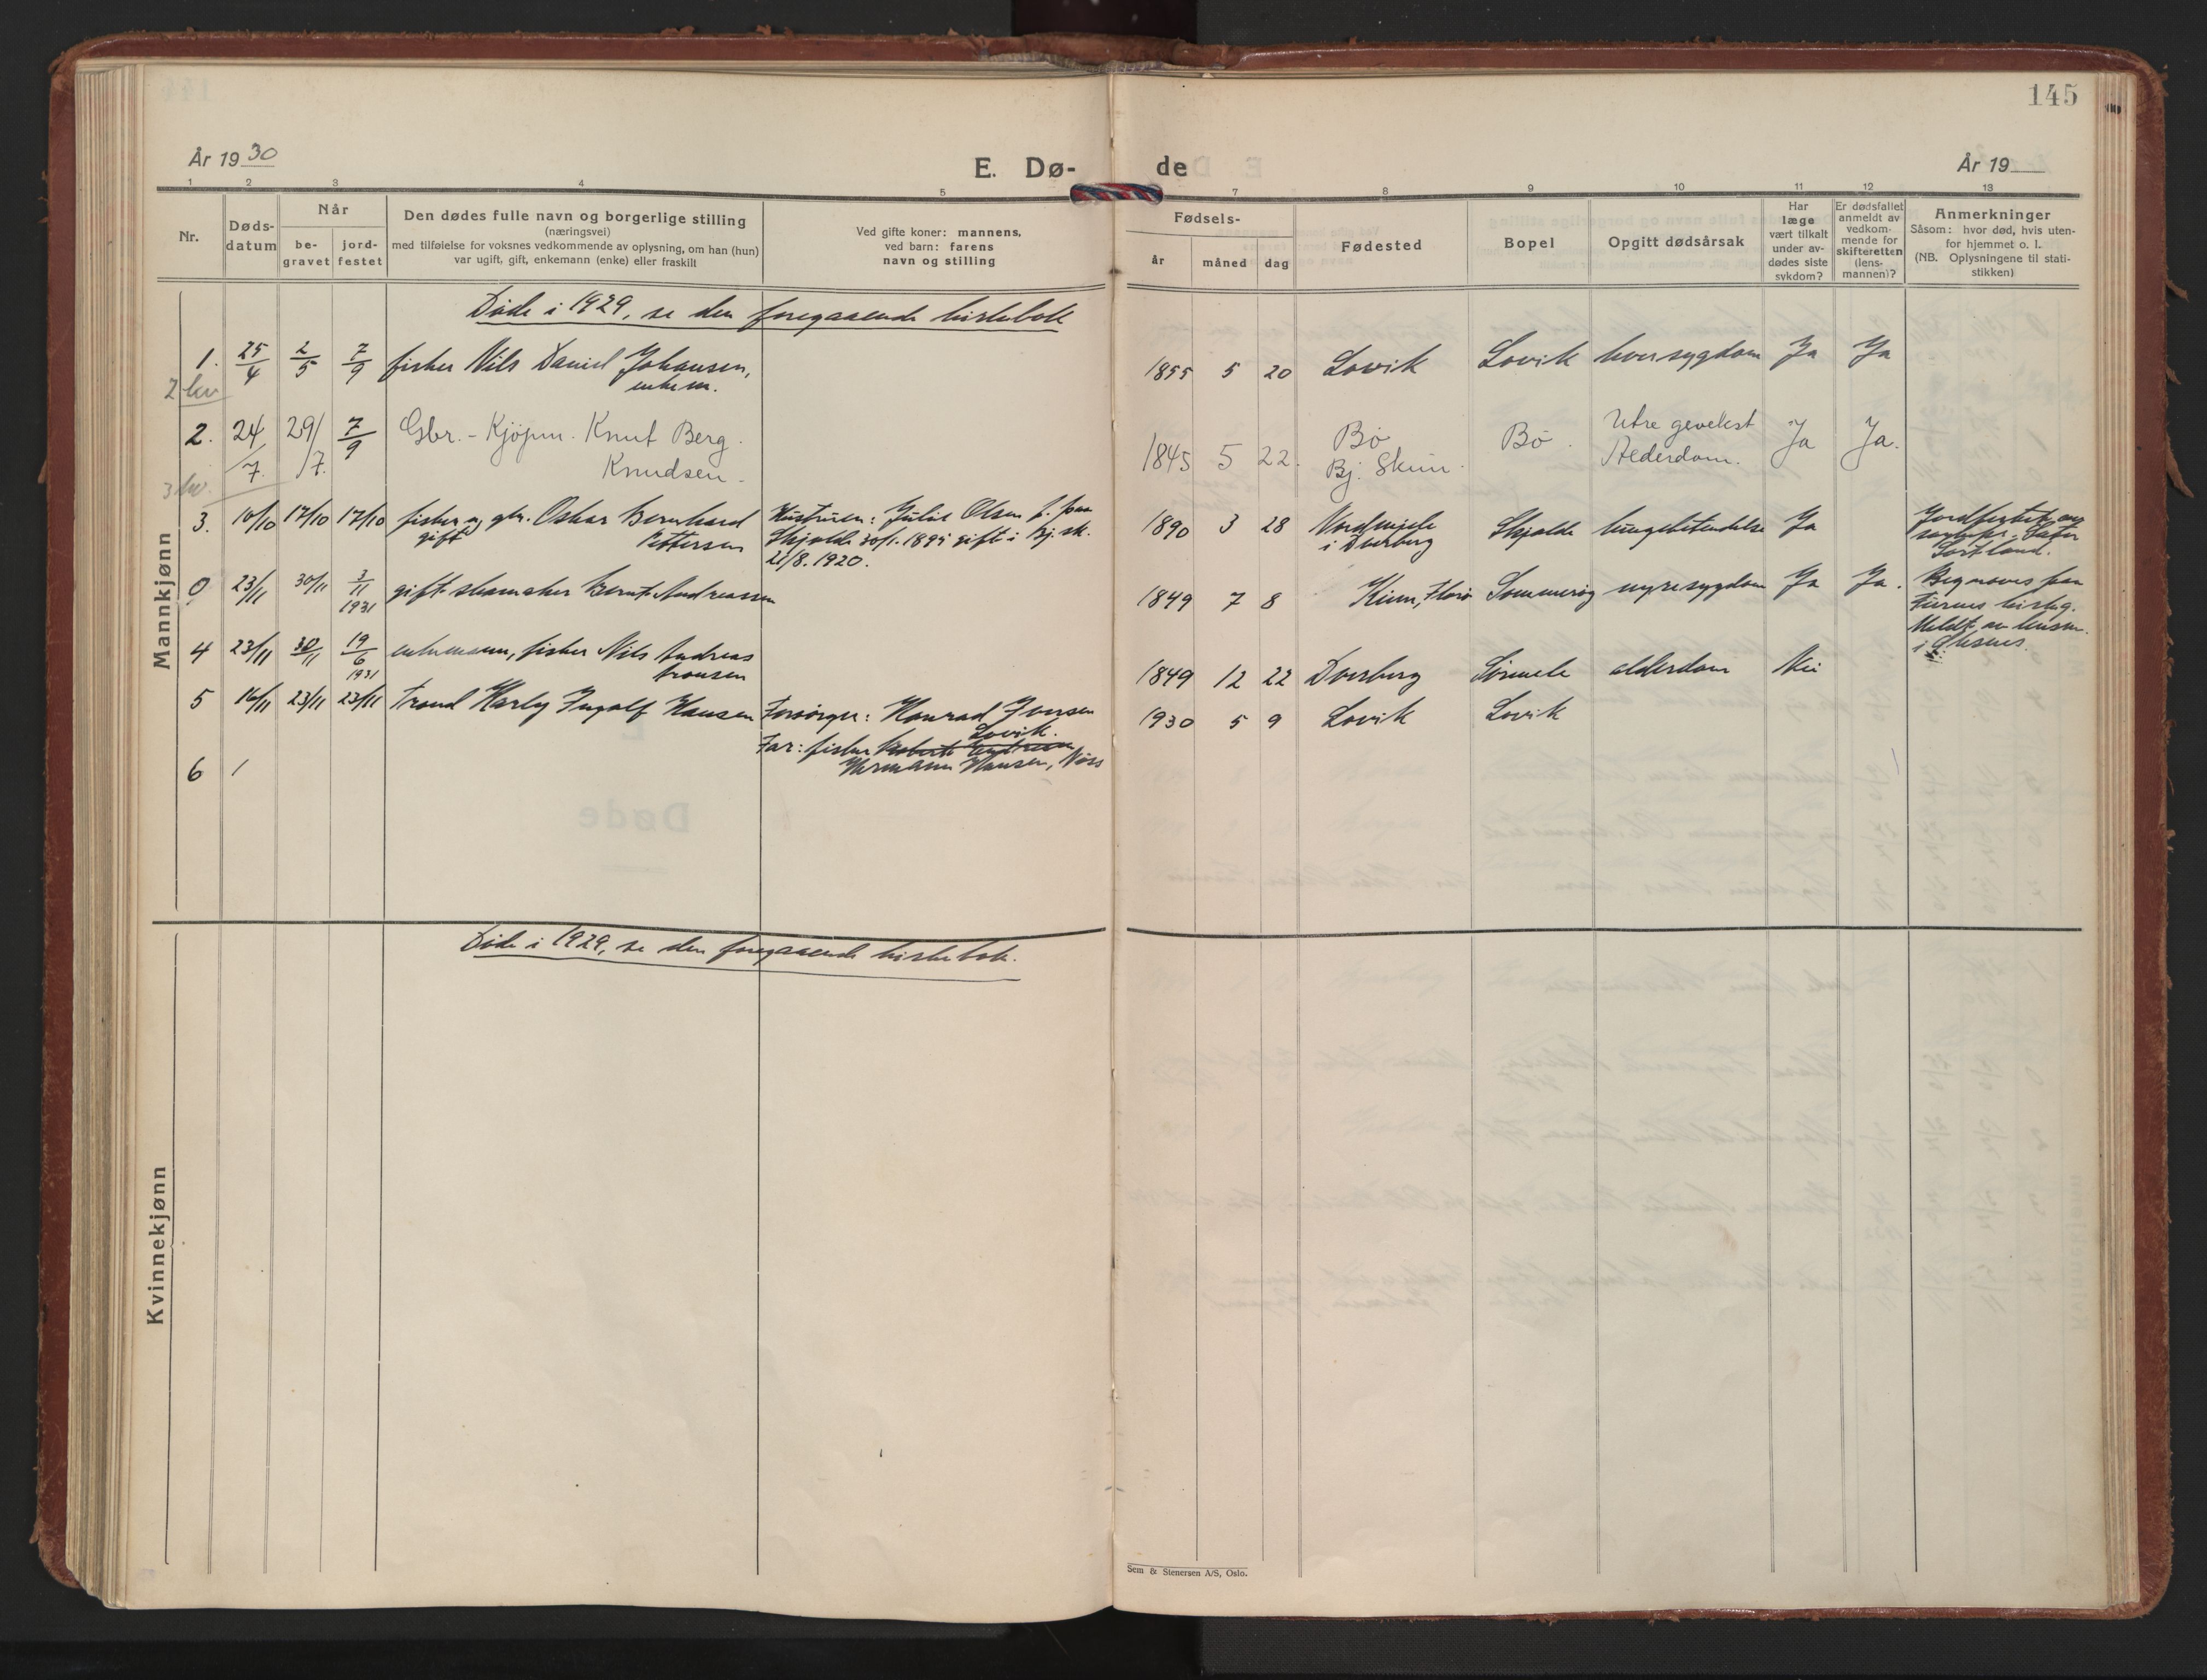 145
År 19 30
E. Dø-
de
År 19
1 2 3 4 5 7 8 9 10 11 12 13
Nr.
Døds-
datum
Når
be-
gravet
jord-
festet
Den dødes fulle navn og borgerlige stilling
(næringsvei)
med tilføielse for voksnes vedkommende av oplysning, om han (hun)
var ugift, gift, enkemann (enke) eller fraskilt
Ved gifte koner: mannens,
ved barn: farens
navn og stilling
Fødsels-
år
måned
dag
Fødested
Bopel
Opgitt dødsårsak
Har
læge
vært tilkalt
under av-
dødes siste
sykdom?
Er dødsfallet
anmeldt av
vedkom-
mende for
skifteretten
(lens-
mannen)?
Anmerkninger
Såsom: hvor død, hvis uten-
for hjemmet o. l.
(NB. Oplysningene til stati-
stikken)
Mannkjønn
Døde i 1929, se den foregaaende kirkebok
1. 25/4 2/5 7/9 fisker Nils Daniel Johansen, 1855 5 20 Lovik Lovik Ja Ja
enkem.
2 kv
2. 24/7. 29/7. 7/9 Gbr. - Kjöpm. Knut Berg 1845 5 22. Bö Bö. Ja Ja.
Knudsen Bj. Alderdom.
3 kv.
3. 10/10 17/10 17/10 fisker og gbr. Oskar Bernhard Hustruen: Julie Olsen f. paa 1890 3 28 Skjolde lungebetendelse Ja
gift Pettersen Skjolde 30/1. 1895 gift i Bj. sk. i Dverberg
21/8. 1920.
Sortland.
0 23/11 30/11 3/11 gift skomaker Bernt Andreassen 1849 7 8 Kinn, Florø nyresygdom Ja Ja.
1931
4 23/11 30/11 19/6 enkemann, fisker Nils Andreas 1849 12 22 Dverberg alderdom Nei
1931
5 16/11 23/11 23/11 Trond Harly Ingolf Hansen Forsørger: Konrad Iversen 1930 5 9 Lovik Lovik
Lovik.
Far: fisker
Hermann Hansen, Nöss
6
Kvinnekjønn
Døde i 1929, se den foregaaende kirkebok.
Sem & Stenersen A/S, Oslo.